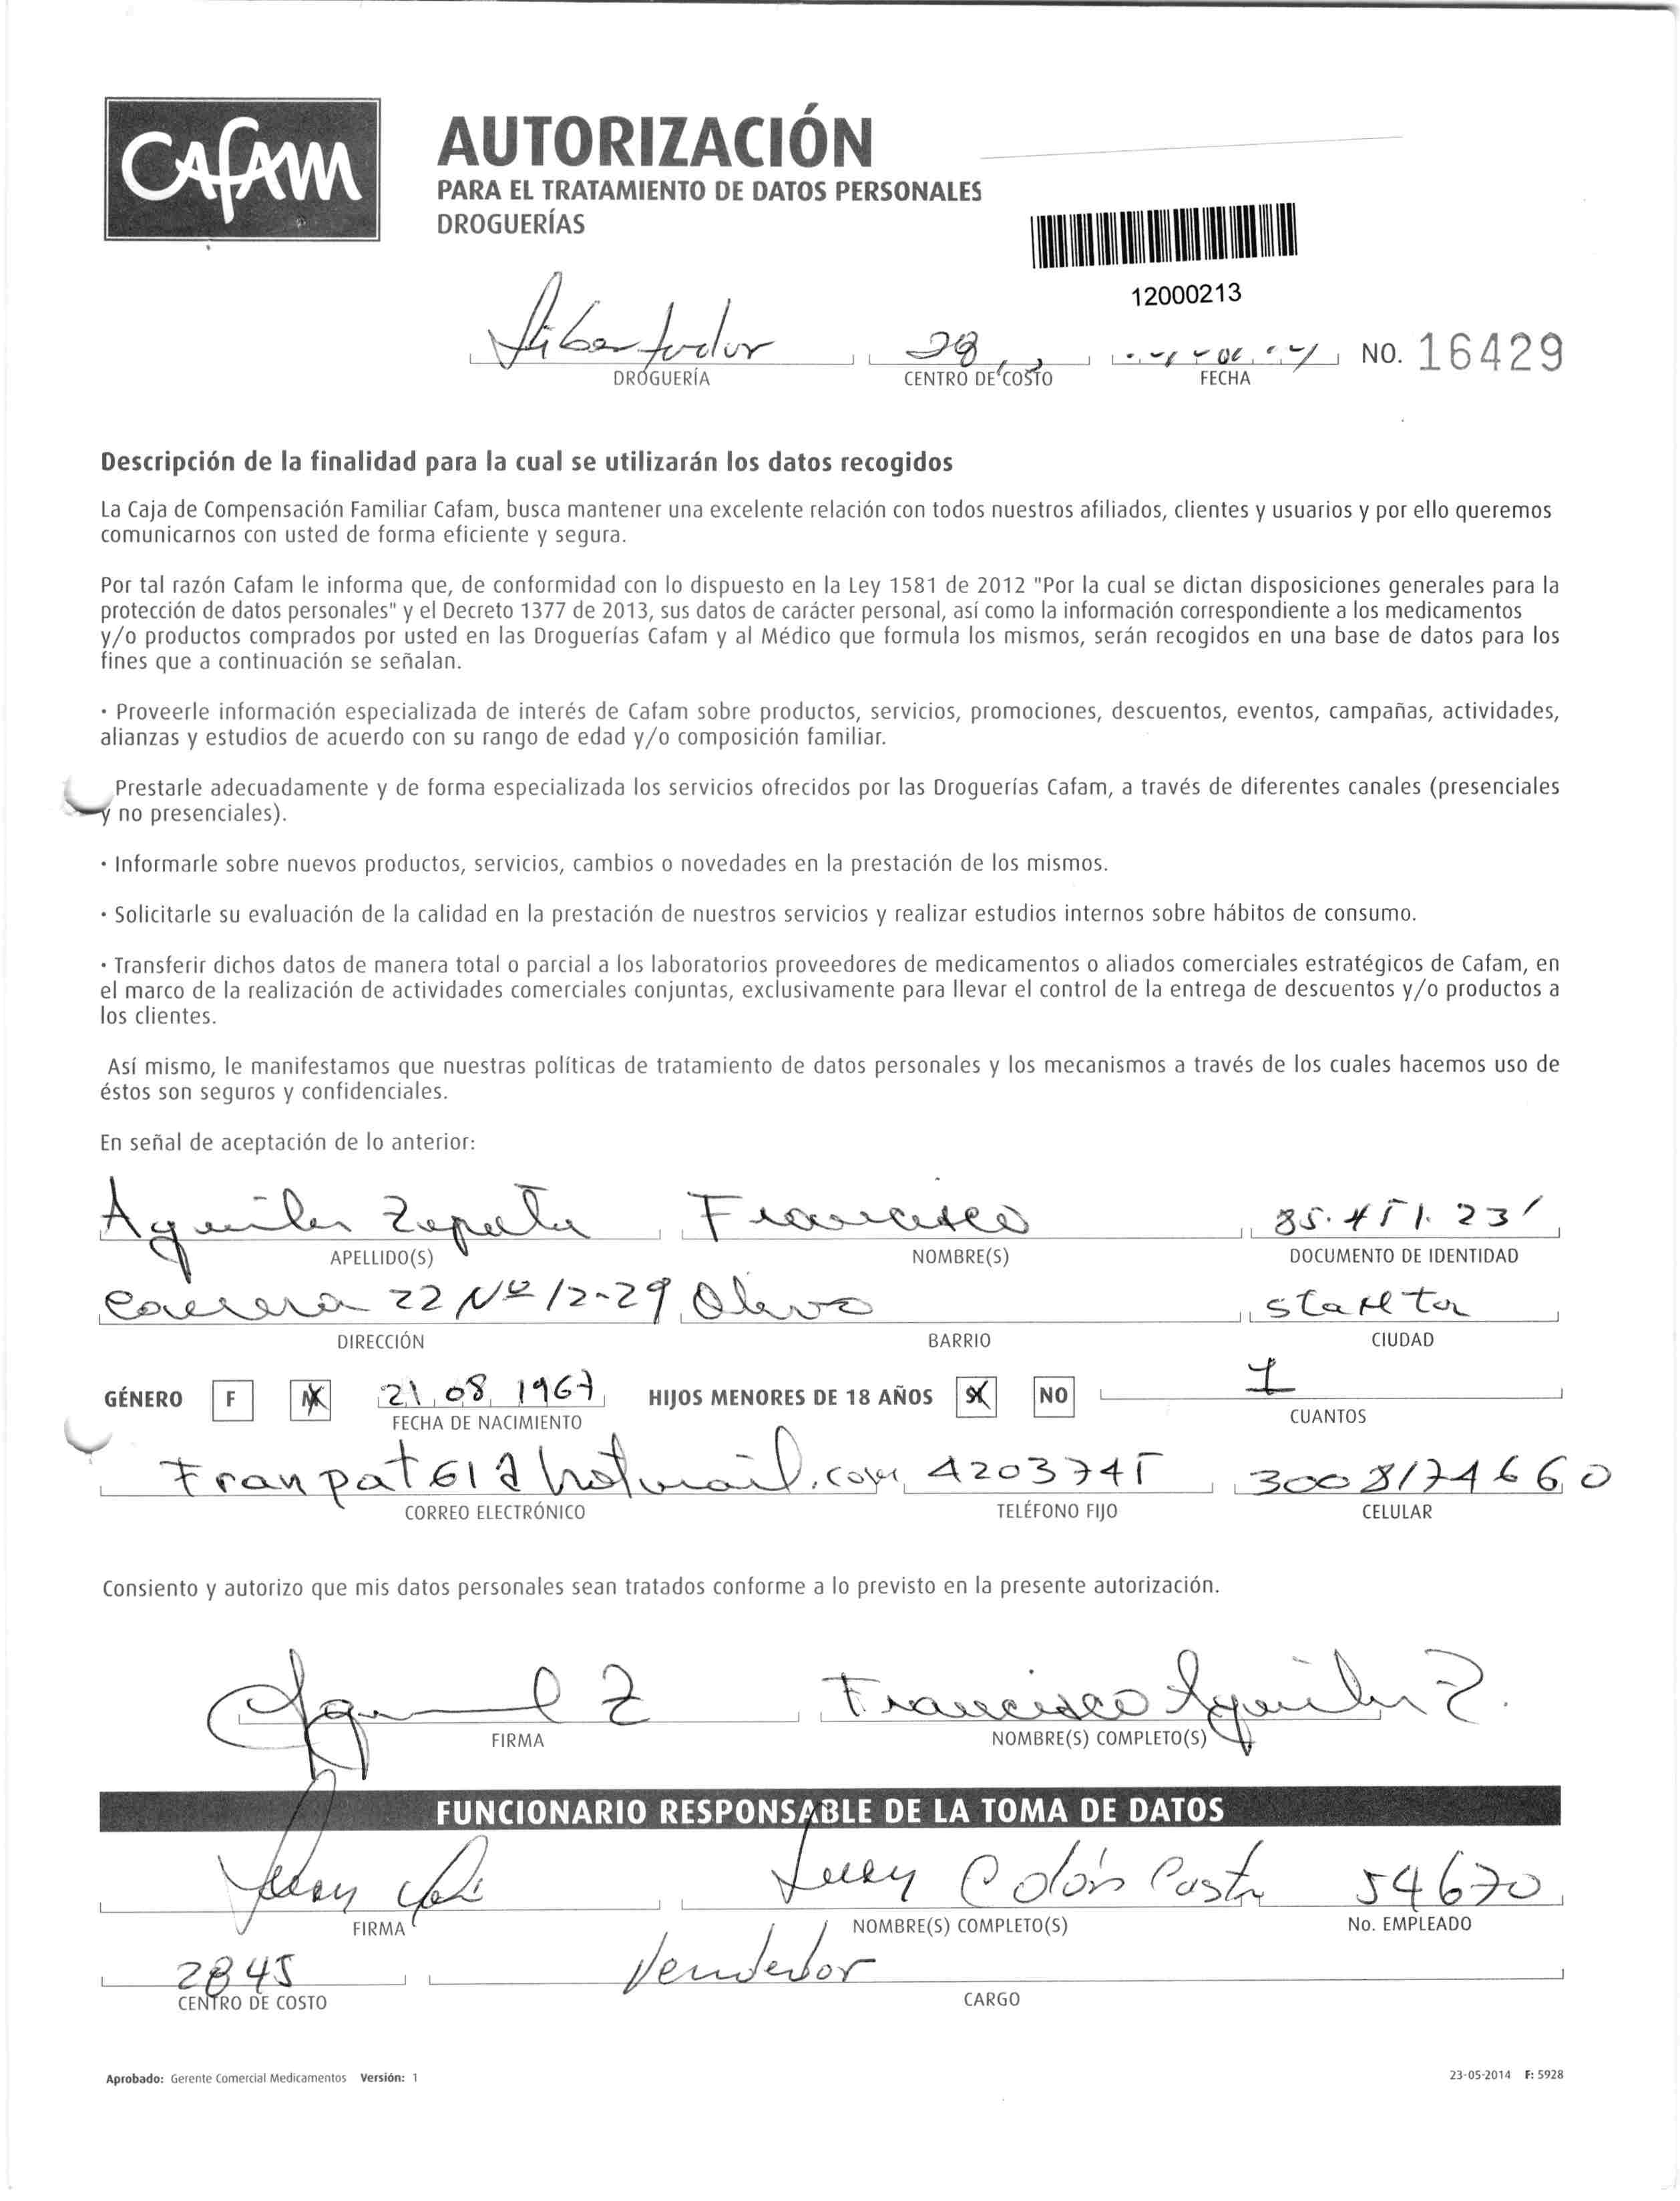 CAFAM
AUTORIZACIÓN
PARA EL TRATAMIENTO DE DATOS PERSONALES
DROGUERÍAS
12000213
Libertador
DROGUERÍA CENTRO DE COSTO FECHA NO. 16429
Descripción de la finalidad para la cual se utilizarán los datos recogidos
La Caja de Compensación Familiar Cafam, busca mantener una excelente relación con todos nuestros afiliados, clientes y usuarios y por ello queremos
comunicarnos con usted de forma eficiente y segura.
Por tal razón Cafam le informa que, de conformidad con lo dispuesto en la Ley 1581 de 2012 "Por la cual se dictan disposiciones generales para la
protección de datos personales" y el Decreto 1377 de 2013, sus datos de carácter personal, así como la información correspondiente a los medicamentos
y/o productos comprados por usted en las Droguerías Cafam y al Médico que formula los mismos, serán recogidos en una base de datos para los
fines que a continuación se señalan.
· Proveerle información especializada de interés de Cafam sobre productos, servicios, promociones, descuentos, eventos, campañas, actividades,
alianzas y estudios de acuerdo con su rango de edad y/o composición familiar.
Prestarle adecuadamente y de forma especializada los servicios ofrecidos por las Droguerías Cafam, a través de diferentes canales (presenciales
y no presenciales).
· Informarle sobre nuevos productos, servicios, cambios o novedades en la prestación de los mismos.
· Solicitarle su evaluación de la calidad en la prestación de nuestros servicios y realizar estudios internos sobre hábitos de consumo.
· Transferir dichos datos de manera total o parcial a los laboratorios proveedores de medicamentos o aliados comerciales estratégicos de Cafam, en
el marco de la realización de actividades comerciales conjuntas, exclusivamente para llevar el control de la entrega de descuentos y/o productos a
los clientes.
Así mismo, le manifestamos que nuestras políticas de tratamiento de datos personales y los mecanismos a través de los cuales hacemos uso de
éstos son seguros y confidenciales.
En señal de aceptación de lo anterior:
Aguilar Zapata Francisco 85.451.231
APELLIDO(S) NOMBRE(S) DOCUMENTO DE IDENTIDAD
Carrera 22 Nº 12-29 Olivo Sta Mta
DIRECCIÓN BARRIO CIUDAD
GÉNERO F M 21 08 1967 HIJOS MENORES DE 18 AÑOS SI NO 1
FECHA DE NACIMIENTO CUANTOS
Franpat61@hotmail.com 4203745 3008174660
CORREO ELECTRÓNICO TELÉFONO FIJO CELULAR
Consiento y autorizo que mis datos personales sean tratados conforme a lo previsto en la presente autorización.
Francisco Aguilar Z.
FIRMA NOMBRE(S) COMPLETO(S)
FUNCIONARIO RESPONSABLE DE LA TOMA DE DATOS
Colón 54670
FIRMA NOMBRE(S) COMPLETO(S) No. EMPLEADO
2845 Vendedor
CENTRO DE COSTO CARGO
Aprobado: Gerente Comercial Medicamentos Versión: 1 23-05-2014 F: 5928